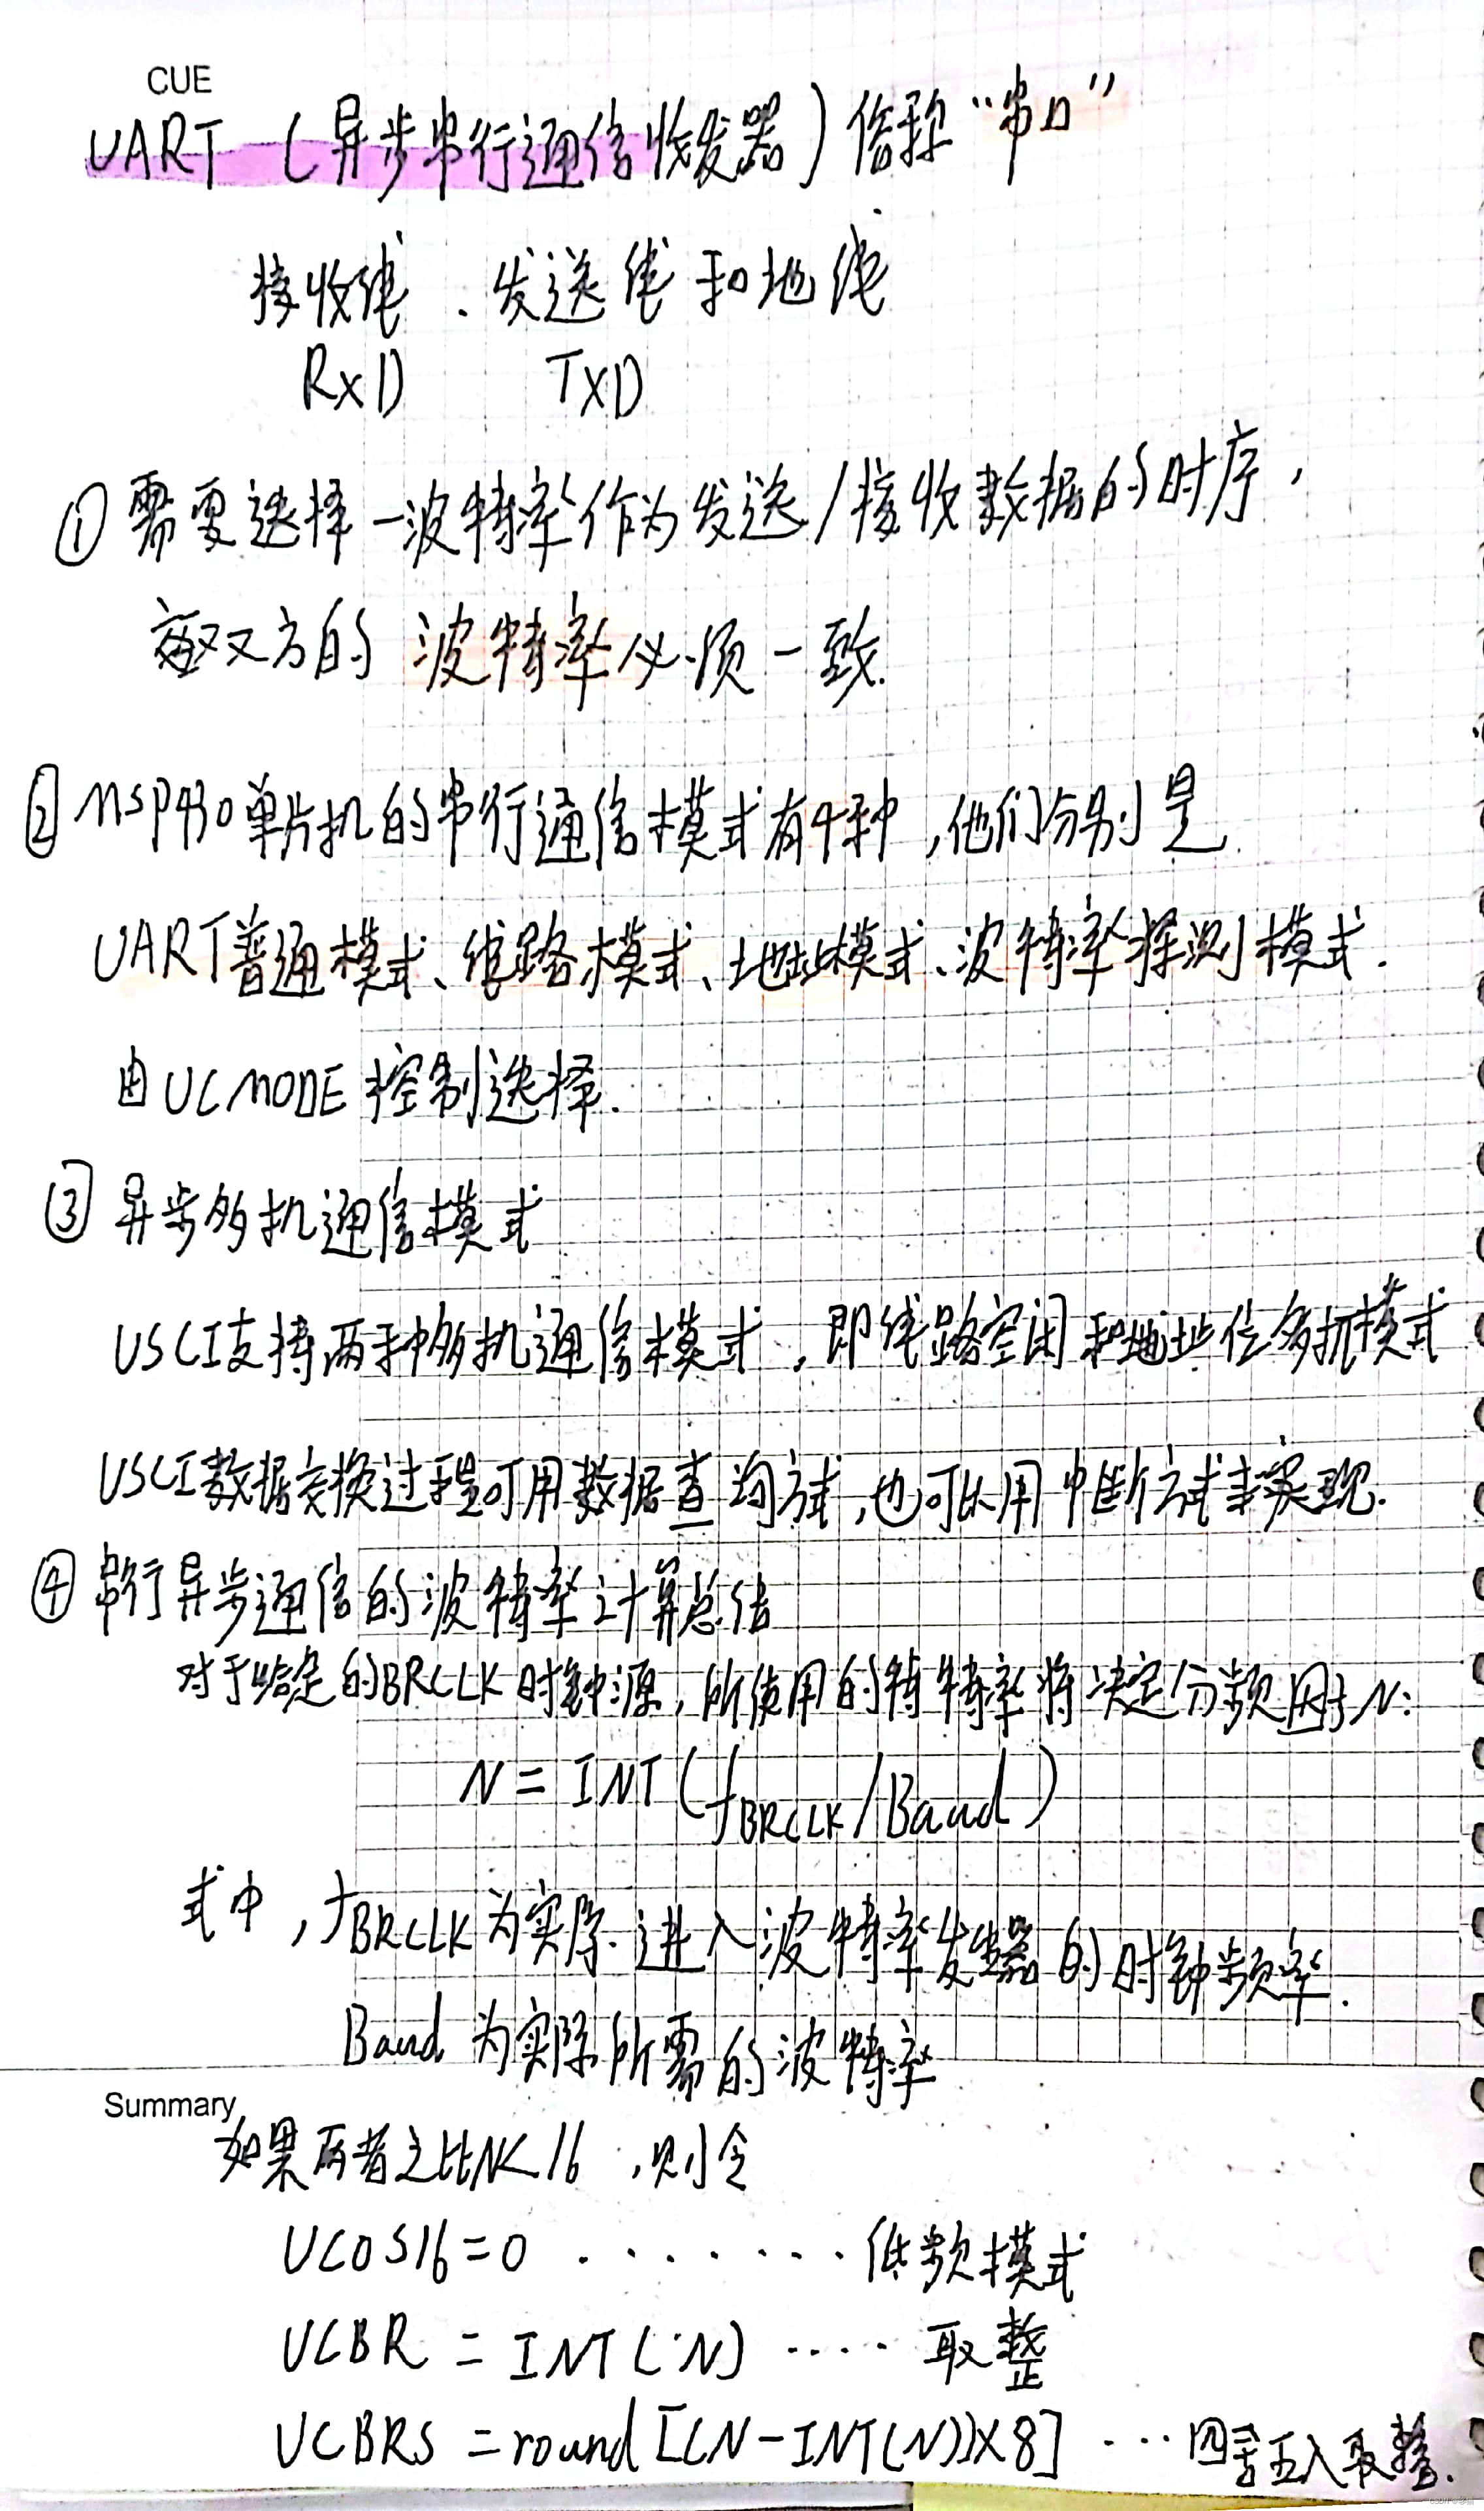 CUE
UART (异步串行通信收发器) 俗称“串口”
接收线、发送线和地线
RxD TXD
① 需要选择一波特率作为发送/接收数据的时序,
双方的波特率必须一致.
② MSP430单片机的串行通信模式有4种,他们分别是
UART普通模式、线路模式、地址模式、波特率探测模式.
由UCMODE控制选择.
③ 异步多机通信模式
USCI支持两种多机通信模式,即线路空闲和地址位多机模式
USCI数据交换过程可用数据查询方式,也可以用中断方式来实现.
④ 串行异步通信的波特率计算总结
对于给定的BRCLK时钟源,所使用的特率将决定分频因子N:
N = INT(fBRCLK/Baud)
式中,fBRCLK为实际进入波特率发生器的时钟频率.
Baud为实际所需的波特率
Summary
如果两者之比N<16,则令
UCOS16=0 ········低频模式
UCBR = INT(N) ····· 取整
UCBRS = round[(N-INT(N))×8] ···四舍五入取整.